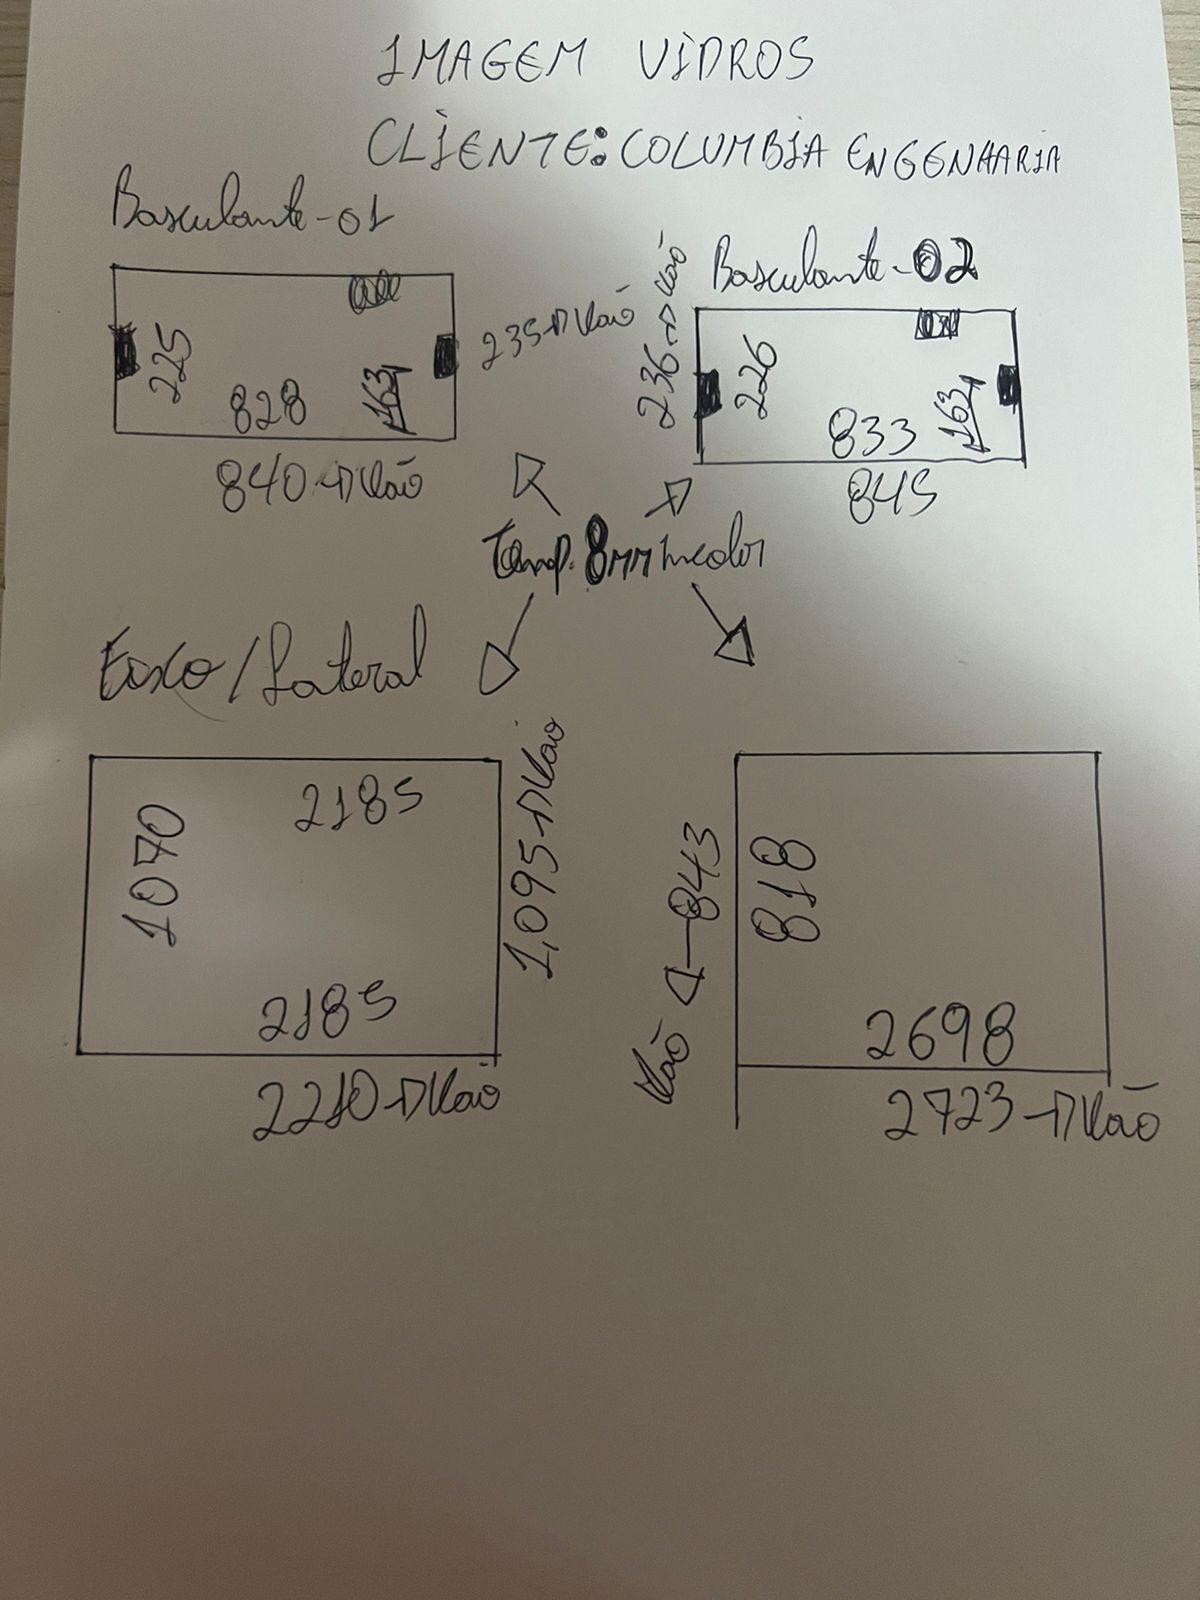 IMAGEM VIDROS
CLIENTE: COLUMBIA ENGENHARIA
Basculante-01
225
828
163
235→Vão
840→Vão
Basculante-02
236→Vão
226
833
163
845
Temp. 8mm Incolor
Fixo/Lateral
2185
1070
2185
1,095→Vão
2210→Vão
Vão ← 843
818
2698
2723→Vão